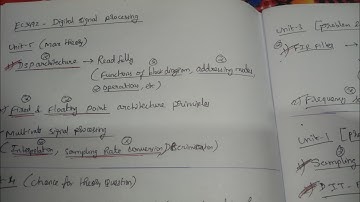 Digital signal processing
Unit-5 (max theory)
DSP architecture → Read fully
(Function of block diagram, addressing modes,
operation, etc)
Fixed & Floating Point architecture principles
Multirate signal processing
(Interpolation, Sampling Rate conversion, Decimation)
(chance for theory question)
Unit-3 [problem
FIR Filter →
Frequency
Unit-1 [pr
Sampling